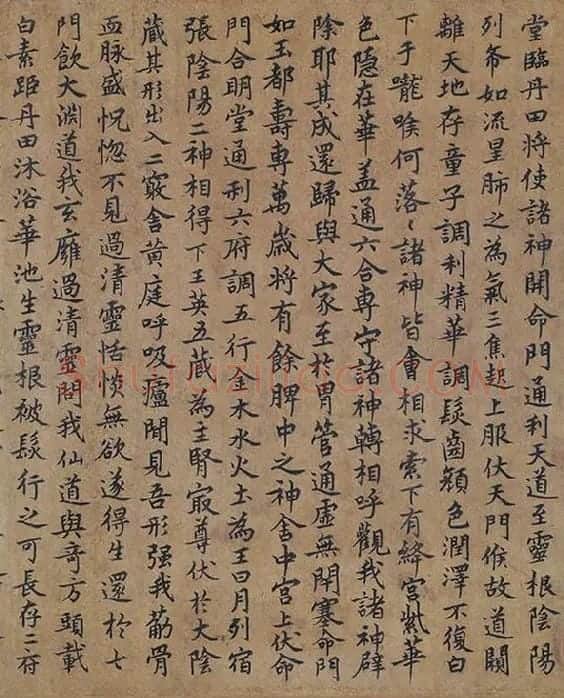 堂臨丹田將使諸神開命門通利天道至靈根陰陽
列布如流星肺之為氣三焦起上服伏天門候故道闚
離天地存童子調利精華調髮齒顏色潤澤不復白
下于嚨喉何落〻諸神皆會相求索下有絳宮紫華
色隱在華蓋通六合專守諸神轉相呼觀我諸神辟
除耶其成還歸與大家至於胃管通虛無閉塞命門
如玉都壽專萬歲將有餘脾中之神舍中宮上伏命
門合明堂通利六府調五行金木水火土為王日月列宿
張陰陽二神相得下王英五藏為主腎㝡尊伏於大陰
藏其形出入二竅舍黃庭呼吸廬間見吾形强我筋骨
血脉盛怳惚不見過清靈恬惔無欲遂得生還於七
門飲大淵道我玄廱過清靈問我仙道與奇方頭載
白素距丹田沐浴華池生靈根被髮行之可長存二府